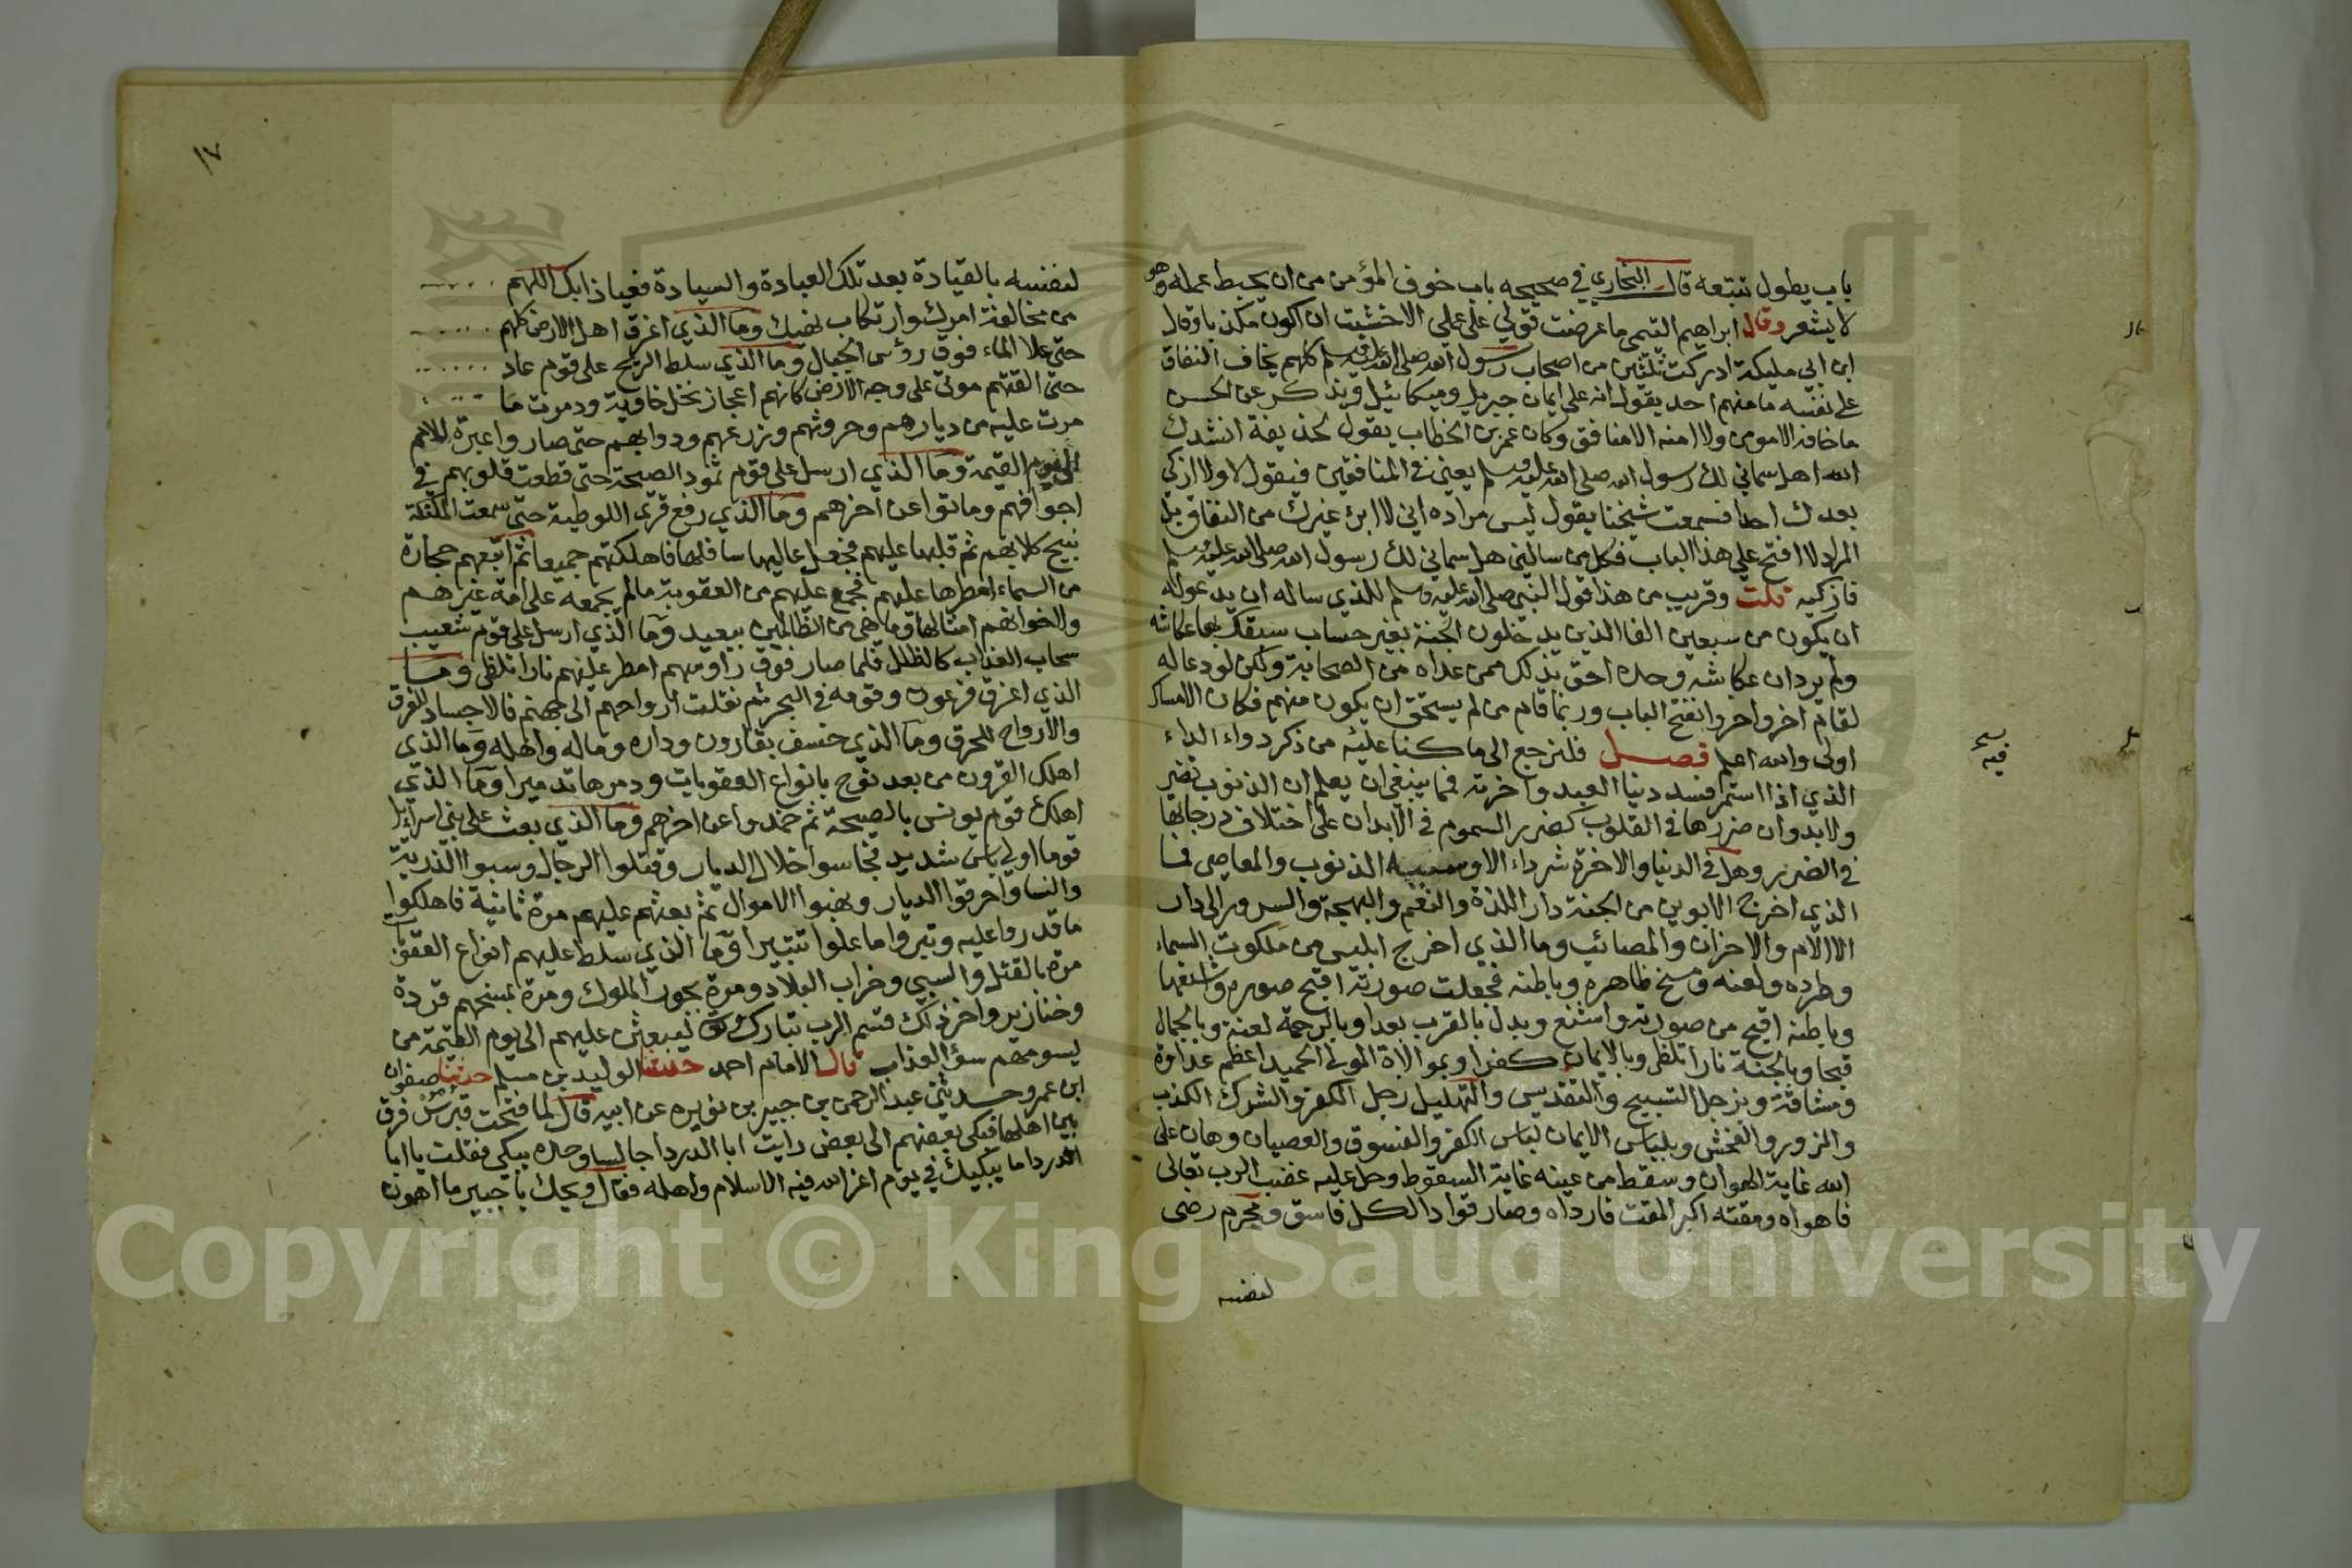 باب يطول تتبعه قال البخاري في صحيحه باب خوف المؤمن من ان يحبط عمله وهو
لا يشعر وقال ابراهيم التيمي ما عرضت قولي على عملي الا خشيت ان اكون مكذبا وقال
ابن ابي مليكة ادركت ثلثين من اصحاب رسول الله صلى الله عليه وسلم كلهم يخاف النفاق
على نفسه ما منهم احد يقول انه على ايمان جبريل وميكائيل ويذكر عن الحسن
ما خافه الا مومن ولا امنه الا منافق وكان عمر بن الخطاب يقول لحذيفة انشدك
الله هل سماني لك رسول الله صلى الله عليه وسلم يعني في المنافقين فيقول لا ولا ازكي
بعدك احدا فسمعت شيخنا يقول ليس مراده اني لا ابرئ غيرك من النفاق بل
المراد لا افتح علي هذا الباب فكل من سالني هل سماني لك رسول الله صلى الله عليه وسلم
فازكيه قلت وقريب من هذا قول النبي صلى الله عليه وسلم للذي ساله ان يدعو له
ان يكون من سبعين الفا الذين يدخلون الجنة بغير حساب سبقك بها عكاشه
ولم يرد ان عكاشه وحده احق بذلك ممن عداه من الصحابة ولكن لو دعا له
لقام اخر واخر وانفتح الباب وربما قام من لم يستحق ان يكون منهم فكان الامساك
اولى والله اعلم فصل فلنرجع الى ما كنا عليه من ذكر دواء الداء
الذي اذا استمر افسد دنيا العبد واخرته فمما ينبغي ان يعلم ان الذنوب تضر
ولا بد وان ضررها في القلوب كضرر السموم في الابدان على اختلاف درجاتها
في الضرر وهل في الدنيا والاخرة شر داء الا وسببه الذنوب والمعاصي فما
الذي اخرج الابوين من الجنة دار اللذة والنعيم والبهجة والسرور الى دار
الالام والاحزان والمصائب وما الذي اخرج ابليس من ملكوت السماء
وطرده ولعنه ومسخ ظاهره وباطنه فجعلت صورته اقبح صورة واشنعها
وباطنه اقبح من صورته واشنع وبدل بالقرب بعدا وبالرحمة لعنة وبالجمال
قبحا وبالجنة نارا تلظى وبالايمان كفرا وبموالاة المولى الحميد اعظم عداوة
ومشاقة وبزجل التسبيح والتقديس والتهليل زجل الكفر والشرك الكذب
والزور والفحش وبلباس الايمان لباس الكفر والفسوق والعصيان وهان على
الله غاية الهوان وسقط من عينه غاية السقوط وحل عليه غضب الرب تعالى
فاهواه ومقته اكبر المقت فارداه وصار قوادا لكل فاسق ومجرم رضي
لنفسه
فيه
١٧
لنفسه بالقيادة بعد تلك العبادة والسيادة فعياذا بك اللهم
من مخالفة امرك وارتكاب نهيك وما الذي اغرق اهل الارض كلهم
حتى علا الماء فوق رؤس الجبال وما الذي سلط الريح على قوم عاد
حتى القتهم موتى على وجه الارض كانهم اعجاز نخل خاوية ودمرت ما
مرت عليه من ديارهم وحروثهم وزرعهم ودوابهم حتى صاروا عبرة للامم
الى يوم القيمة وما الذي ارسل على قوم ثمود الصيحة حتى قطعت قلوبهم في
اجوافهم وماتوا عن اخرهم وما الذي رفع قرى اللوطية حتى سمعت الملئكة
نبيح كلابهم ثم قلبها عليهم فجعل عاليها سافلها فاهلكتهم جميعا ثم اتبعهم حجارة
من السماء امطرها عليهم فجمع عليهم من العقوبة ما لم يجمعه على امة غيرهم
ولاخوانهم امثالها وما هي من الظالمين ببعيد وما الذي ارسل على قوم شعيب
سحاب العذاب كالظلل فلما صار فوق رأوسهم امطر عليهم نارا تلظى وما
الذي اغرق فرعون وقومه في البحر ثم نقلت ارواحهم الى جهنم فالاجساد للغرق
والارواح للحرق وما الذي خسف بقارون وداره وماله واهله وما الذي
اهلك القرون من بعد نوح بانواع العقوبات ودمرها تدميرا وما الذي
اهلك قوم يونس بالصيحة ثم خمدوا عن اخرهم وما الذي بعث على بني اسرائيل
قوما اولي باس شديد فجاسوا خلال الديار وقتلوا الرجال وسبوا الذرية
والنسا واحرقوا الديار ونهبوا الاموال ثم بعثهم عليهم مرة ثانية فاهلكوا
ما قدروا عليه وتبروا ما علوا تتبيرا وما الذي سلط عليهم انواع العقوبات
مرة بالقتل والسبي وخراب البلاد ومرة بجور الملوك ومرة بمسخهم قردة
وخنازير واخر ذلك قسم الرب تبارك وتعالى ليبعثن عليهم الى يوم القيمة من
يسومهم سؤ العذاب قال الامام احمد حدثنا الوليد بن مسلم حدثنا صفوان
ابن عمرو حدثني عبد الرحمن بن جبير بن نفير عن ابيه قال لما فتحت قبرس فرق
بين اهلها فبكى بعضهم الى بعض رايت ابا الدردا جالسا وحده يبكي فقلت يا ابا
الدردا ما يبكيك في يوم اعز الله فيه الاسلام واهله فقال ويحك يا جبير ما اهون
Copyright © King Saud University